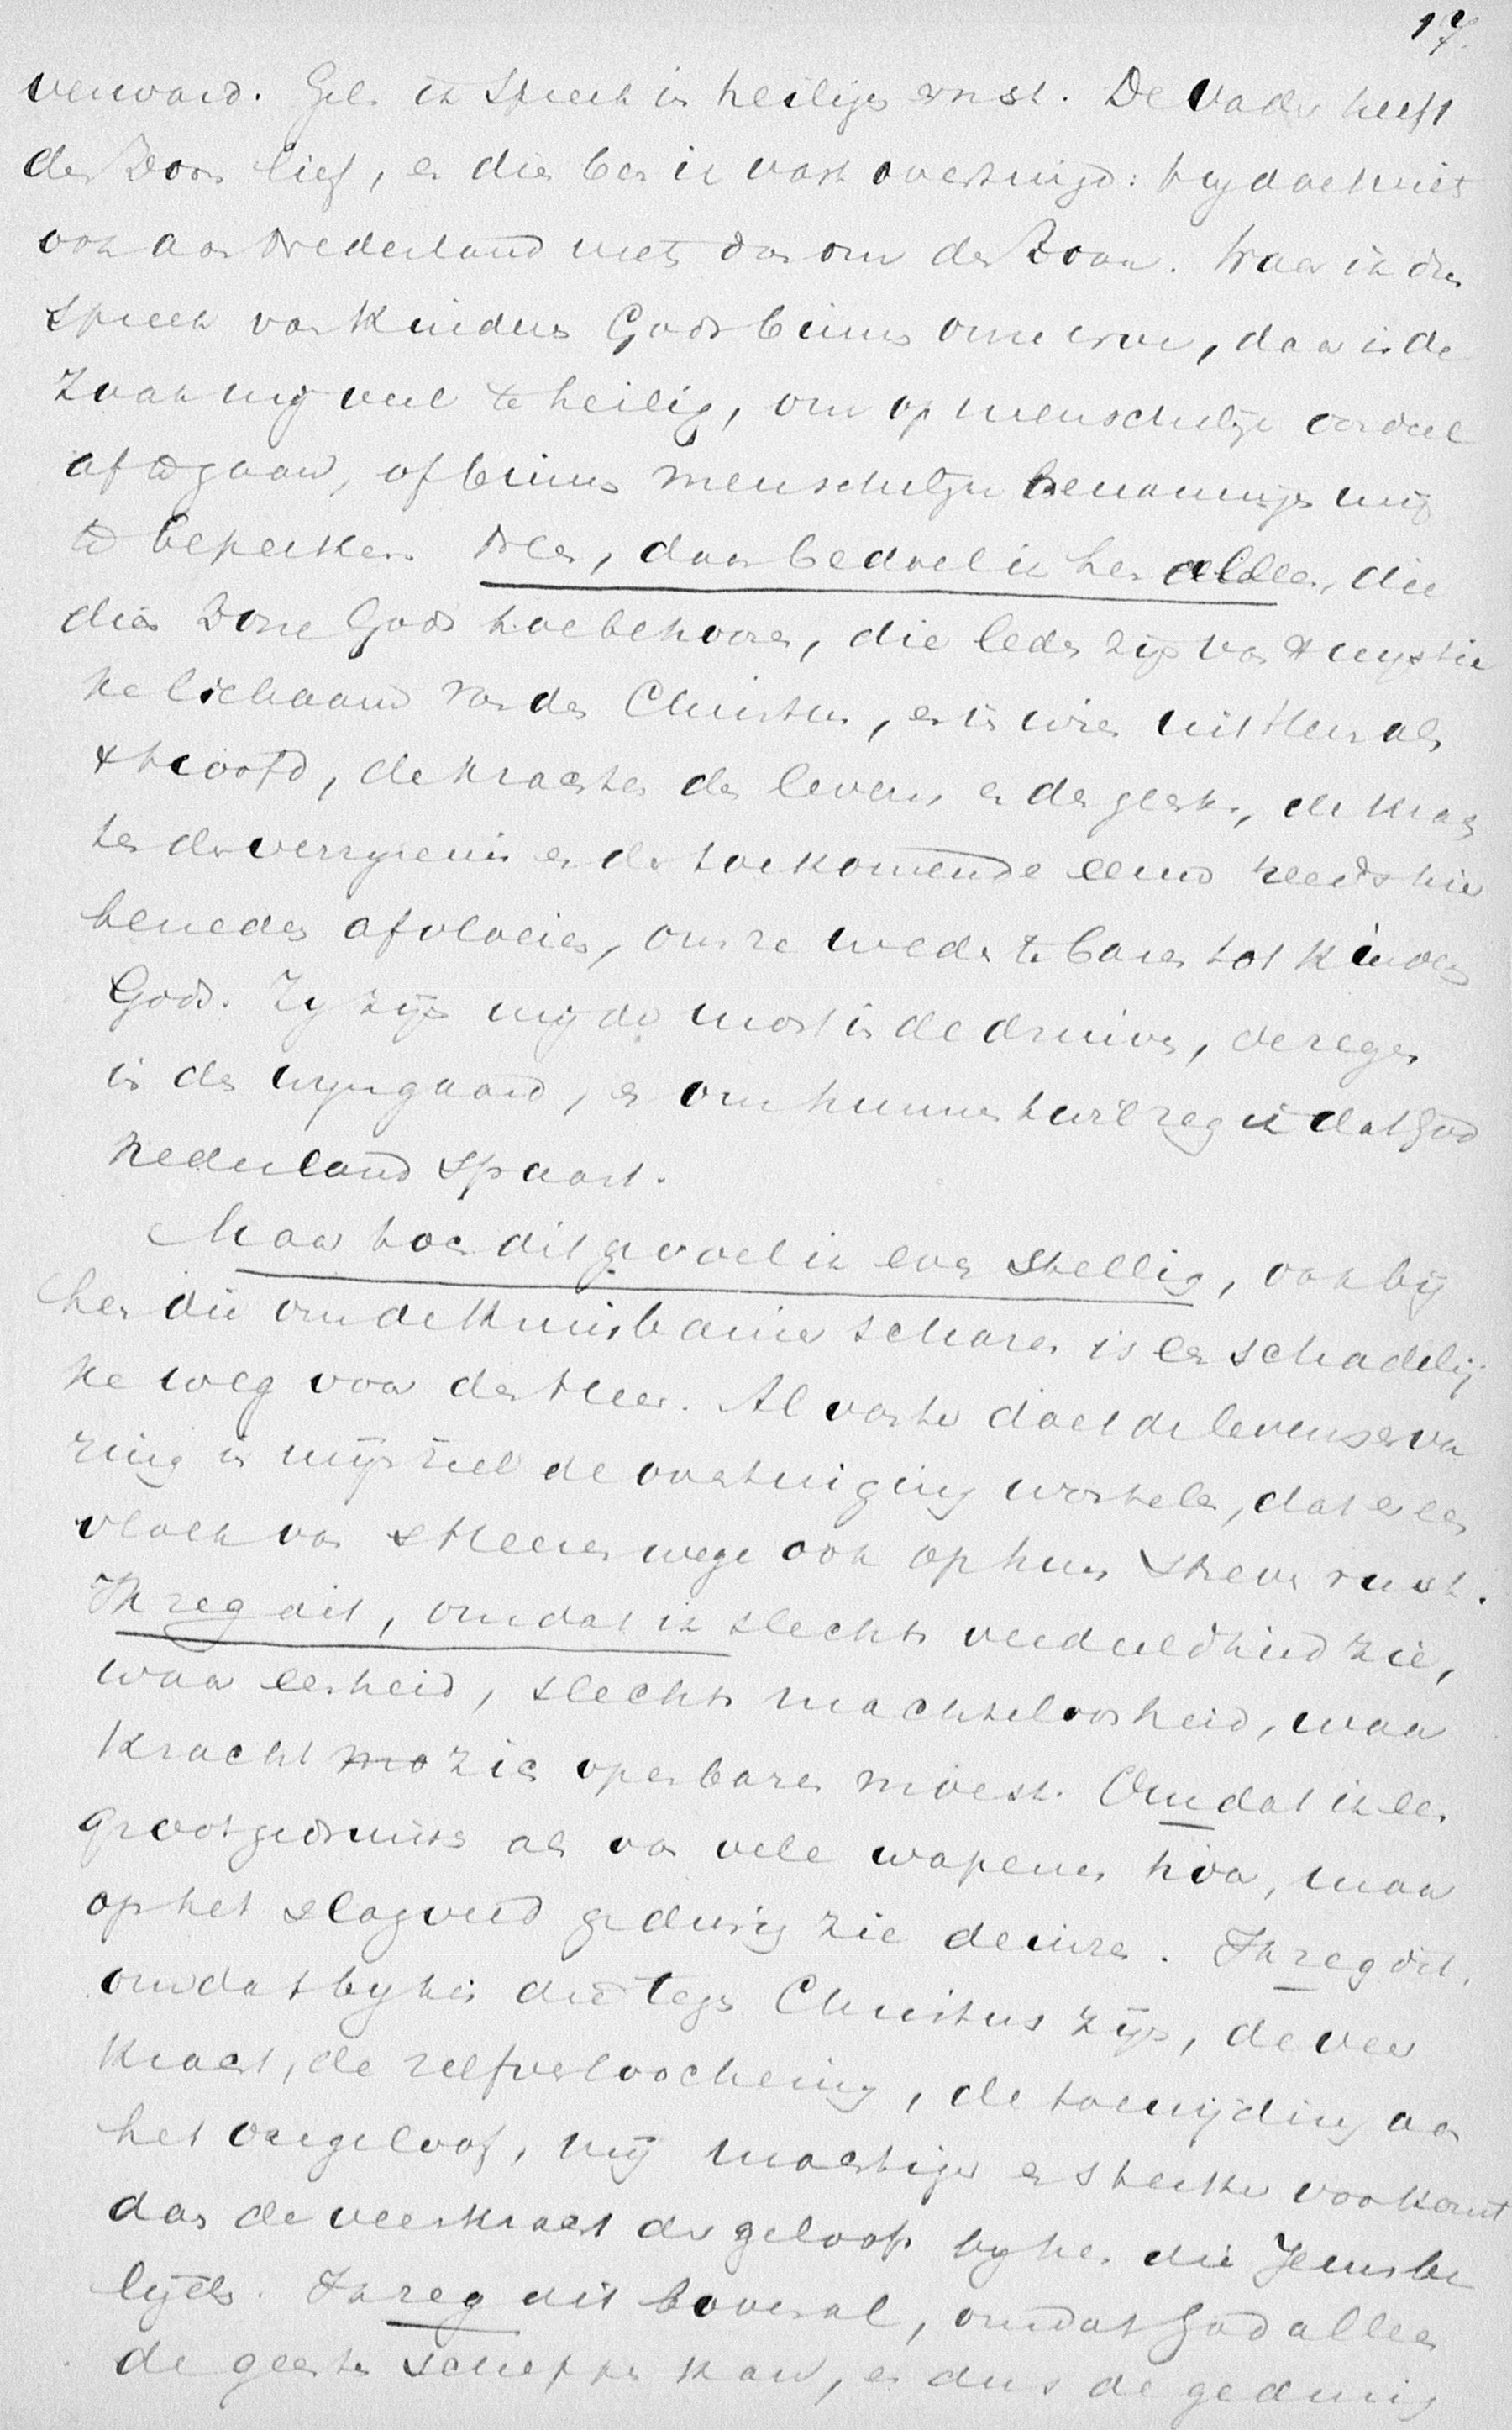 17.
verward. Gel. ik spreek in heiligen ernst. De Vader heeft
den Zoon lief, en dies ben ik vast overtuigd: hij doet niets
ook aan Nederland niets dan om den Zoon. Waar ik dus
spreek van Kinderen Gods binnen onze erve, daar is de
zaak mij veel te heilig, om op menschelijk oordeel
af te gaan, of binnen menschelijke benamingen mij
te beperken. Neen, daar bedoel ik hen allen, die
dien Zone Gods toebehooren, die leden zijn van 't mystie
ke lichaam van den Christus, en in wien uit Hem als
't hoofd, de krachten des levens en des geestes, de krach
ten der verryzenis en der toekomende eeuw reeds hier
beneden afvloeien, om ze weder te baren tot kinderen
Gods. Zy zijn mij de most in de druiven, de zegen
in den wyngaard, en om hunnentwil zeg ik dat God
Nederland spaart.
Maar toch dit gevoel ik even stellig, ook bij
hen die om de Kruisbanier scharen is een schadelij
ke weg voor den Heer. Al vaster doet de levenserva
ring in mijn ziel de overtuiging wortelen, dat er een
vloek van 's Heeren wege ook op hun streven rust.
Ik zeg dit, omdat ik slechts verdeeldheid zie,
waar eenheid, slechts machteloosheid, waar
kracht mo zich openbaren moest. Omdat ik een
groot gedruisch als van vele wapenen hoor, maar
op het slagveld gedurig zie deinzen. Ik zeg dit,
omdat by hen die tegen Christus zijn, de veer
kracht, de zelfverloochening, de toewijding aan
het ongeloof, mij machtiger en sterker voorkomt
dan de veerkracht des geloofs by hen die Jezus be
lijden. Ik zeg dit bovenal, omdat God alleen
de geesten scheppen kan, en dus de gedurig